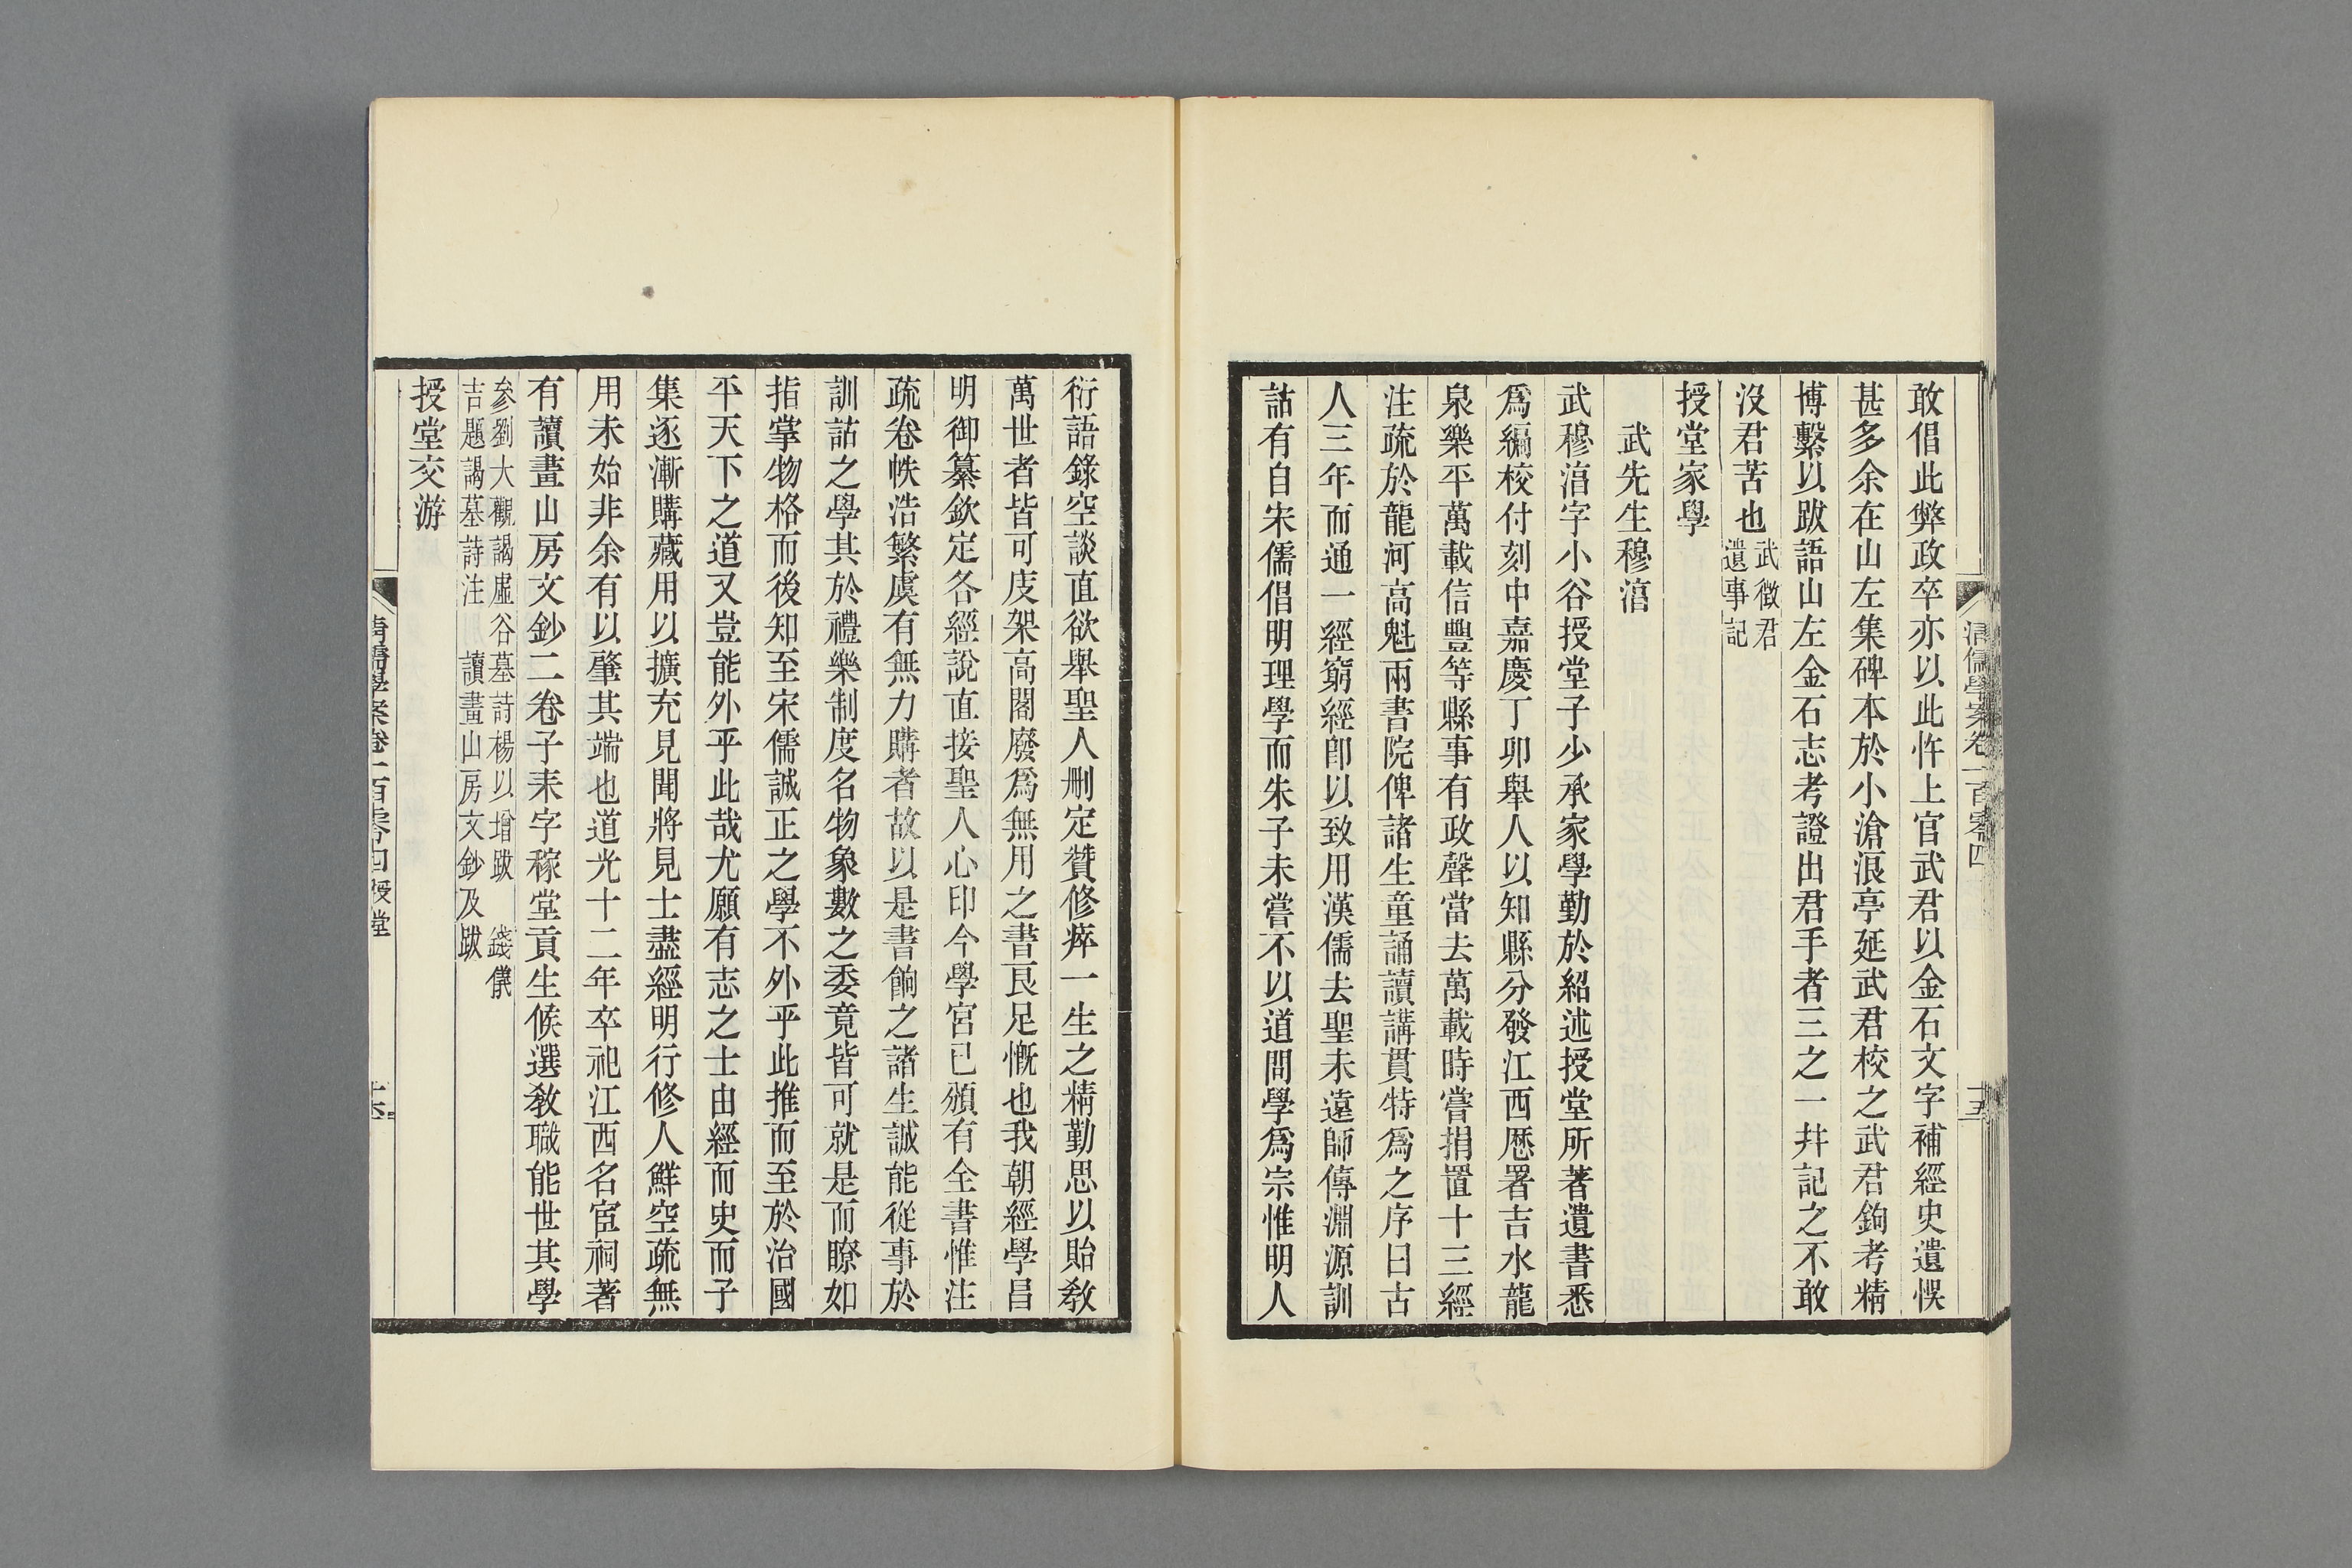 清儒學案卷一百零四
十五
敢倡此弊政卒亦以此忤上官武君以金石文字補經史遺悞
甚多余在山左集碑本於小滄浪亭延武君校之武君鉤考精
博繫以跋語山左金石志考證出君手者三之一幷記之不敢
沒君苦也武徵君
遺事記
授堂家學
武先生穆淳
武穆淳字小谷授堂子少承家學勤於紹述授堂所著遺書悉
爲編校付刻中嘉慶丁卯舉人以知縣分發江西歷署吉水龍
泉樂平萬載信豐等縣事有政聲當去萬載時嘗捐置十三經
注疏於龍河高魁兩書院俾諸生童誦讀講貫特爲之序曰古
人三年而通一經窮經卽以致用漢儒去聖未遠師傳淵源訓
詁有自宋儒倡明理學而朱子未嘗不以道問學爲宗惟明人
衍語錄空談直欲舉聖人刪定贊修瘁一生之精勤思以貽敎
萬世者皆可庋架高閣廢爲無用之書良足慨也我朝經學昌
明御纂欽定各經說直接聖人心印今學宮已頒有全書惟注
疏卷帙浩繁虞有無力購者故以是書餉之諸生誠能從事於
訓詁之學其於禮樂制度名物象數之委竟皆可就是而瞭如
指掌物格而後知至宋儒誠正之學不外乎此推而至於治國
平天下之道又豈能外乎此哉尤願有志之士由經而史而子
集逐漸購藏用以擴充見聞將見士盡經明行修人鮮空疏無
用未始非余有以肇其端也道光十二年卒祀江西名宦祠著
有讀畫山房文鈔二卷子耒字稼堂貢生候選敎職能世其學
參劉大觀謁虛谷墓詩楊以增跋　錢儀
吉題謁墓詩注　讀畫山房文鈔及跋
授堂交游
清儒學案卷一百零四 授堂